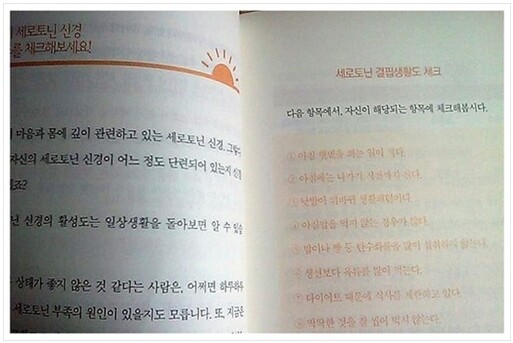 세로토닌 신경
를 체크해보세요!
마음과 몸에 깊이 관련하고 있는 세로토닌 신경. 그렇다
자신의 세로토닌 신경이 어느 정도 단련되어 있는지
신경의 활성도는 일상생활을 돌아보면 알 수 있습
상태가 좋지 않은 것 같다는 사람은, 어쩌면 하루하루
세로토닌 부족의 원인이 있을지도 모릅니다. 또, 지금은
세로토닌 결핍생활도 체크
다음 항목에서, 자신이 해당되는 항목에 체크해봅시다.
① 아침 햇볕을 쬐는 일이 적다.
② 아침에는 나가기 직전까지 잔다.
③ 낮밤이 뒤바뀐 생활패턴이다.
④ 아침밥을 먹지 않는 경우가 많다.
⑤ 밥이나 빵 등 탄수화물을 많이 섭취하지 않는다.
⑥ 생선보다 육류를 많이 먹는다.
⑦ 다이어트 때문에 식사를 제한하고 있다.
⑧ 딱딱한 것을 잘 씹어 먹지 않는다.